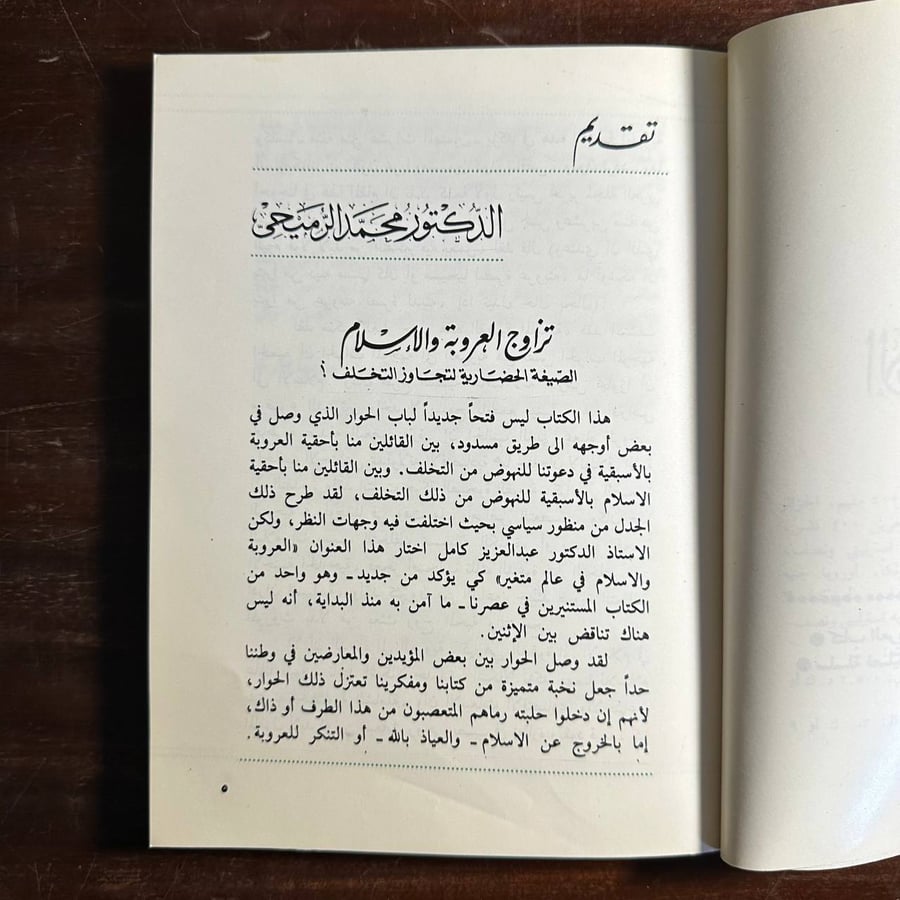 تقديم
الدكتور محمد الرميحي
تزاوج العروبة والإسلام
الصيغة الحضارية لتجاوز التخلف !
هذا الكتاب ليس فتحاً جديداً لباب الحوار الذي وصل في
بعض أوجهه الى طريق مسدود، بين القائلين منا بأحقية العروبة
بالأسبقية في دعوتنا للنهوض من التخلف. وبين القائلين منا بأحقية
الاسلام بالأسبقية للنهوض من ذلك التخلف، لقد طرح ذلك
الجدل من منظور سياسي بحيث اختلفت فيه وجهات النظر، ولكن
الاستاذ الدكتور عبدالعزيز كامل اختار هذا العنوان «العروبة
والاسلام في عالم متغير» كي يؤكد من جديد ـ وهو واحد من
الكتاب المستنيرين في عصرنا ـ ما آمن به منذ البداية، أنه ليس
هناك تناقض بين الإثنين.
لقد وصل الحوار بين بعض المؤيدين والمعارضين في وطننا
حداً جعل نخبة متميزة من كتابنا ومفكرينا تعتزل ذلك الحوار،
لأنهم إن دخلوا حلبته رماهم المتعصبون من هذا الطرف أو ذاك،
إما بالخروج عن الاسلام ـ والعياذ بالله ـ أو التنكر للعروبة.
٥